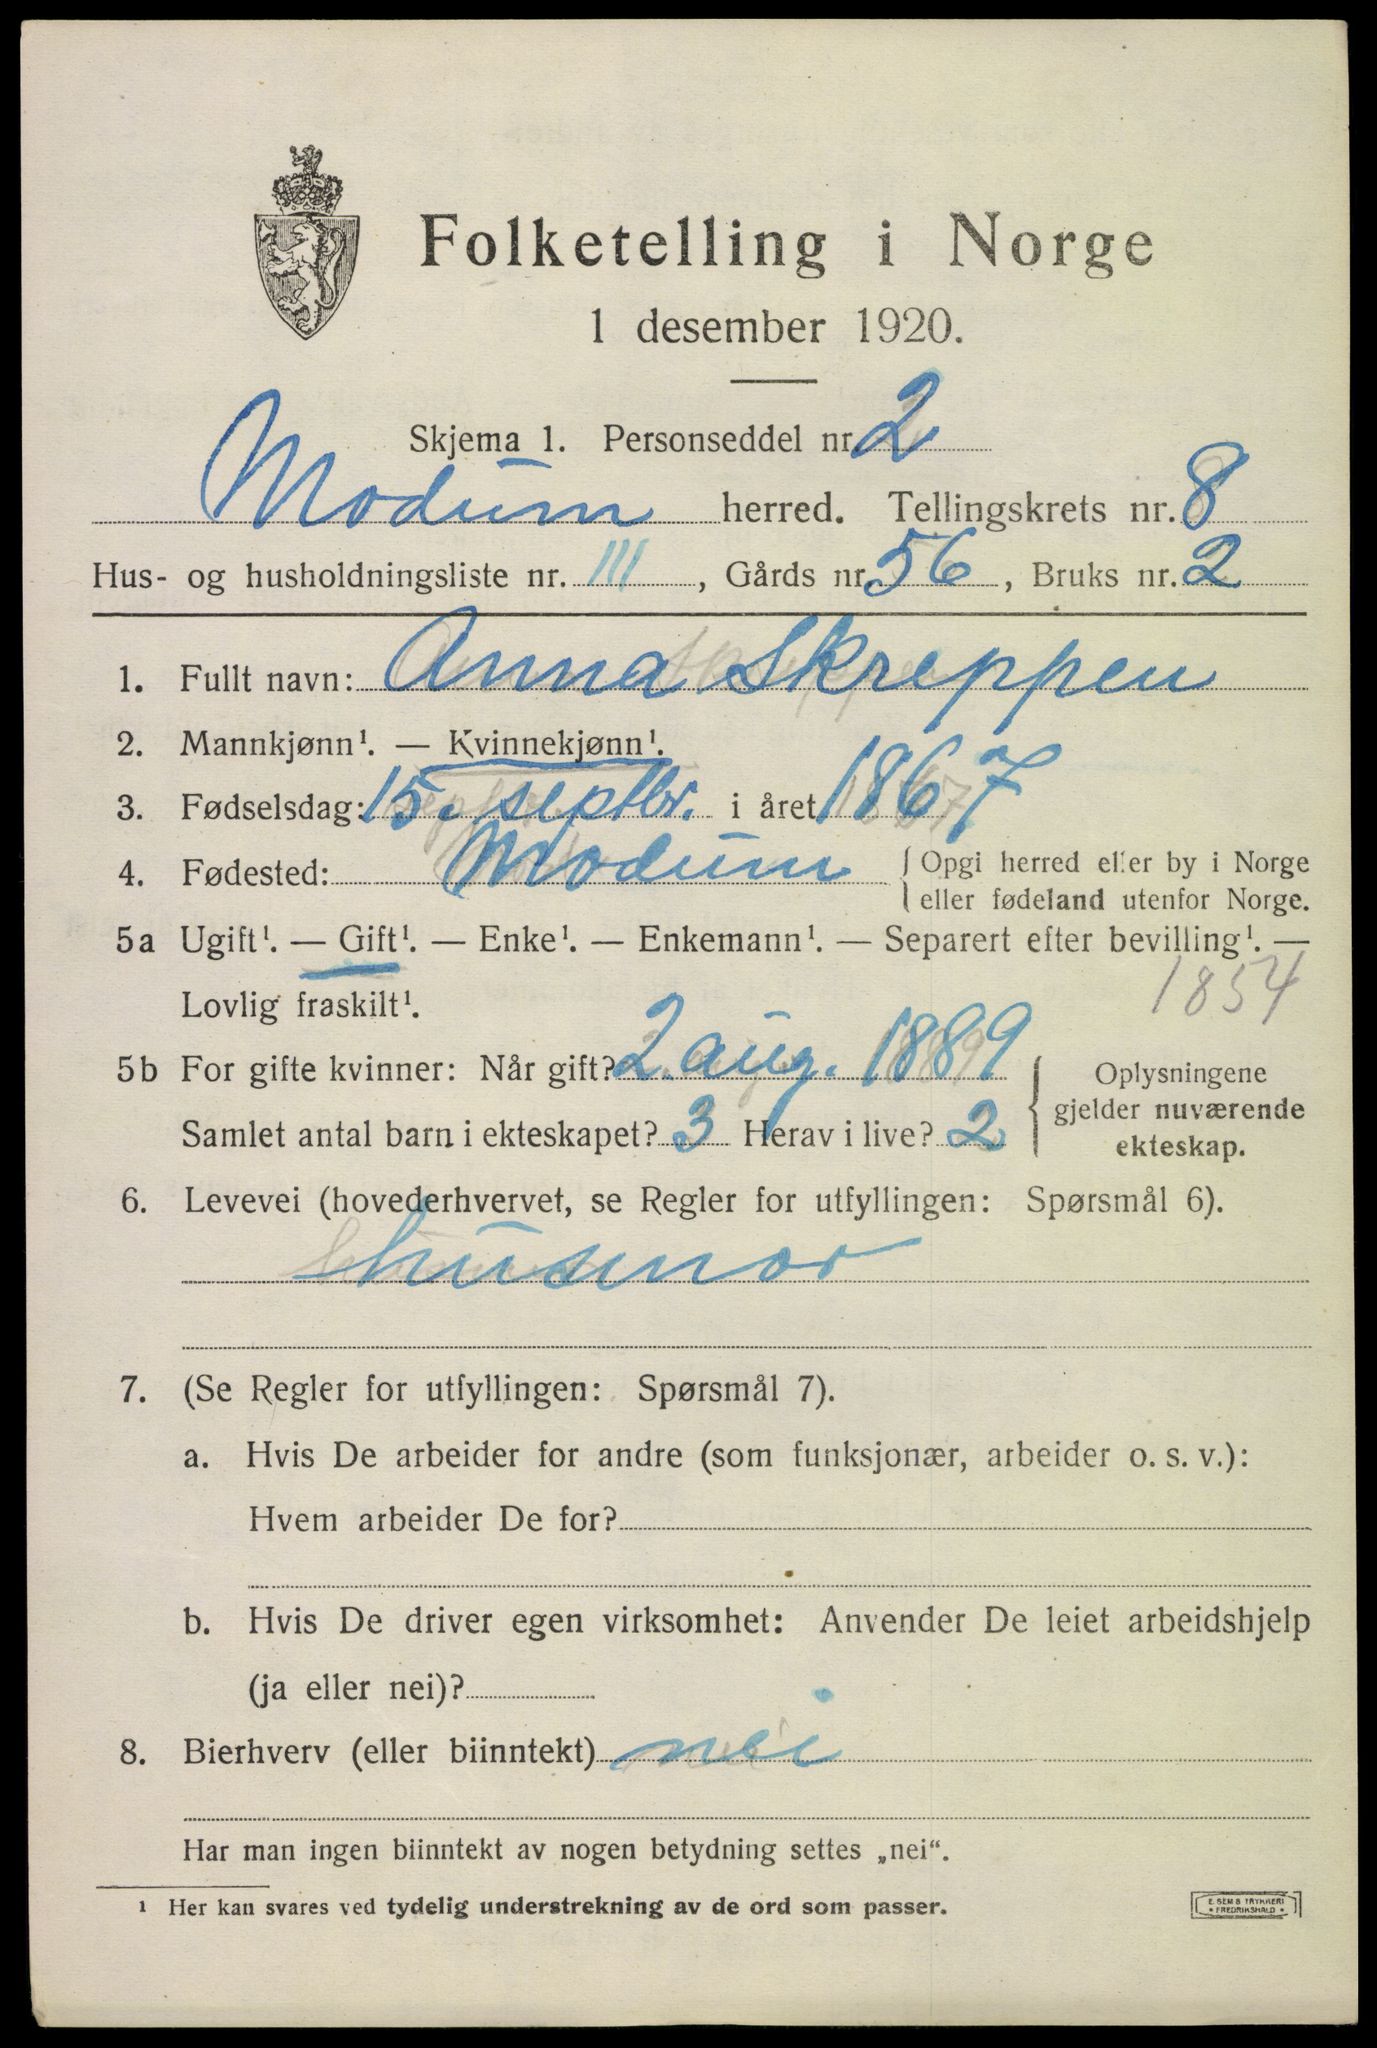 Folketelling i Norge
1 desember 1920.
Skjema 1. Personseddel nr. 2
Modum herred. Tellingskrets nr. 8
Hus- og husholdningsliste nr. III, Gårds nr. 56, Bruks nr. 2
1. Fullt navn: Anna Skreppen
2. Mannkjønn¹. — Kvinnekjønn¹.
3. Fødselsdag: 15. septbr. i året 1867
4. Fødested: Modum { Opgi herred eller by i Norge
eller fødeland utenfor Norge.
5a Ugift¹. — Gift¹. — Enke¹. — Enkemann¹. — Separert efter bevilling¹. —
Lovlig fraskilt¹. 1854
5b For gifte kvinner: Når gift? 2 aug. 1889
Samlet antal barn i ekteskapet? 3 Herav i live? 2
{ Oplysningene
gjelder nuværende
ekteskap.
6. Levevei (hovederhvervet, se Regler for utfyllingen: Spørsmål 6).
husmor
7. (Se Regler for utfyllingen: Spørsmål 7).
a. Hvis De arbeider for andre (som funksjonær, arbeider o. s. v.):
Hvem arbeider De for?
b. Hvis De driver egen virksomhet: Anvender De leiet arbeidshjelp
(ja eller nei)?
8. Bierhverv (eller biinntekt) nei
Har man ingen biinntekt av nogen betydning settes „nei“.
¹ Her kan svares ved tydelig understrekning av de ord som passer.
E. SEM S TRYKKERI
FREDRIKSHALD